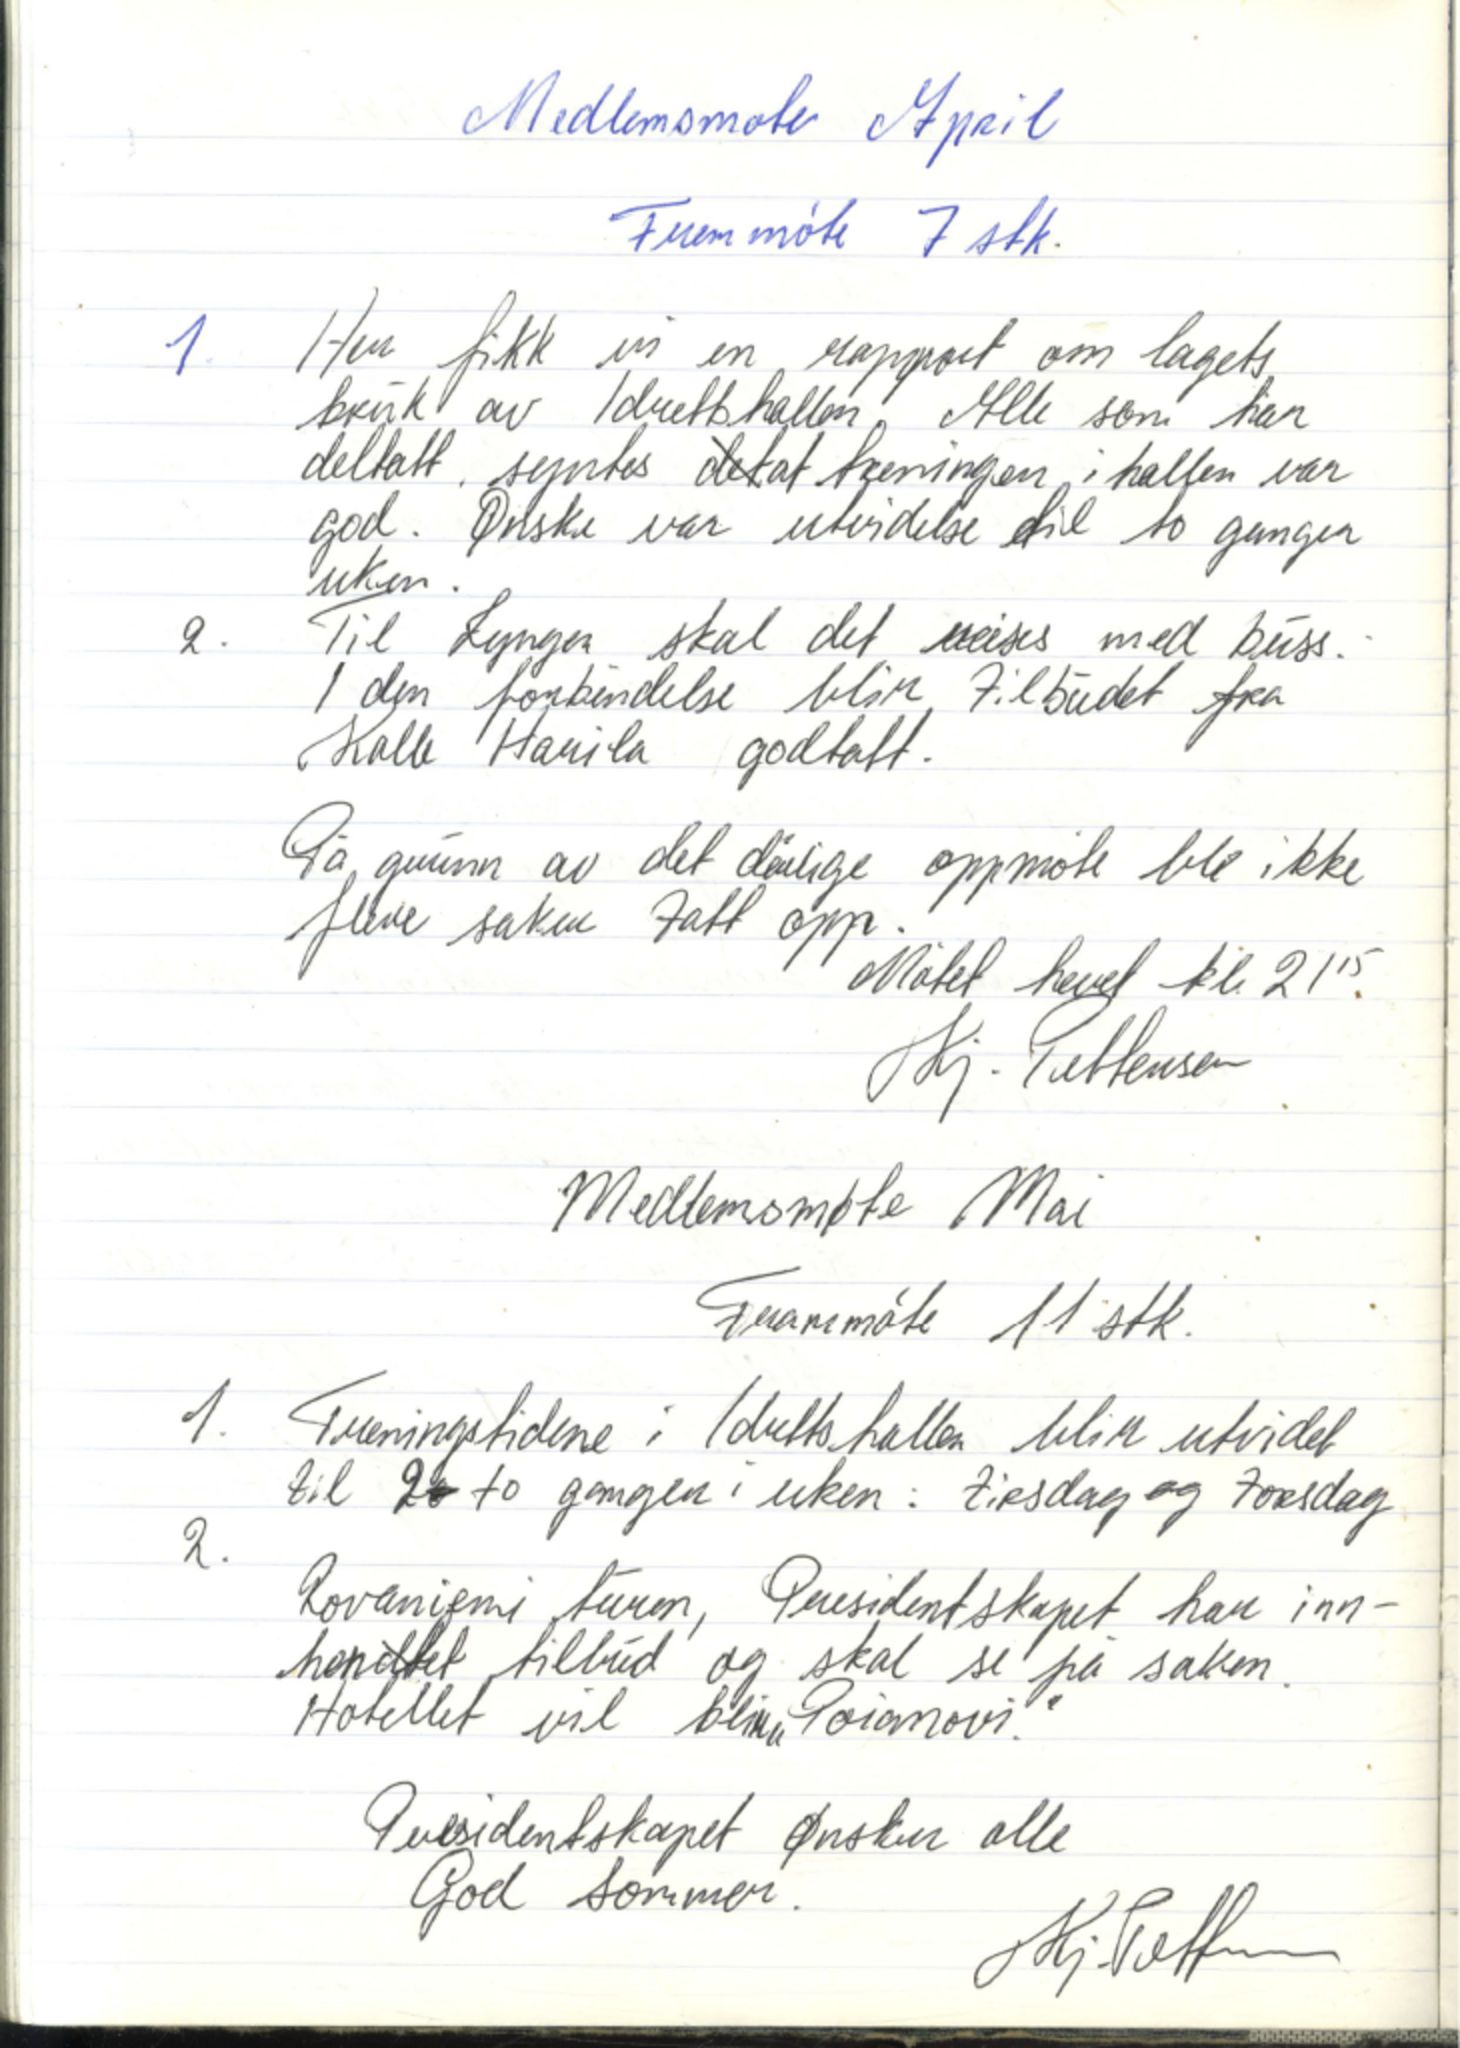 Medlemsmøte April
Fremmøte 7 stk.
1. Her fikk vi en rapport om lagets
bruk av Idrettshallen. Alle som har
deltatt, syntes at treningen i hallen var
god. Ønske var utvidelse til to ganger
uken.
2. Til Lyngen skal det reises med buss.
I den forbindelse blir tilbudet fra
Kalle Harila godtatt.
På grunn av det dårlige oppmøte ble ikke
flere saker tatt opp.
Møtet hevet kl. 21 15.
Kj. Pettersen
Medlemsmøte Mai
Frammøte 11 stk.
1. Treningstidene i Idrettshallen blir utvidet
til to ganger i uken: Tirsdag og Torsdag
2.
Rovaniemi turen, Presidentskapet har inn-
hentet tilbud og skal se på saken.
Hotellet vil bli "
Presidentskapet Ønsker alle
God sommer.
Kj. Pettersen